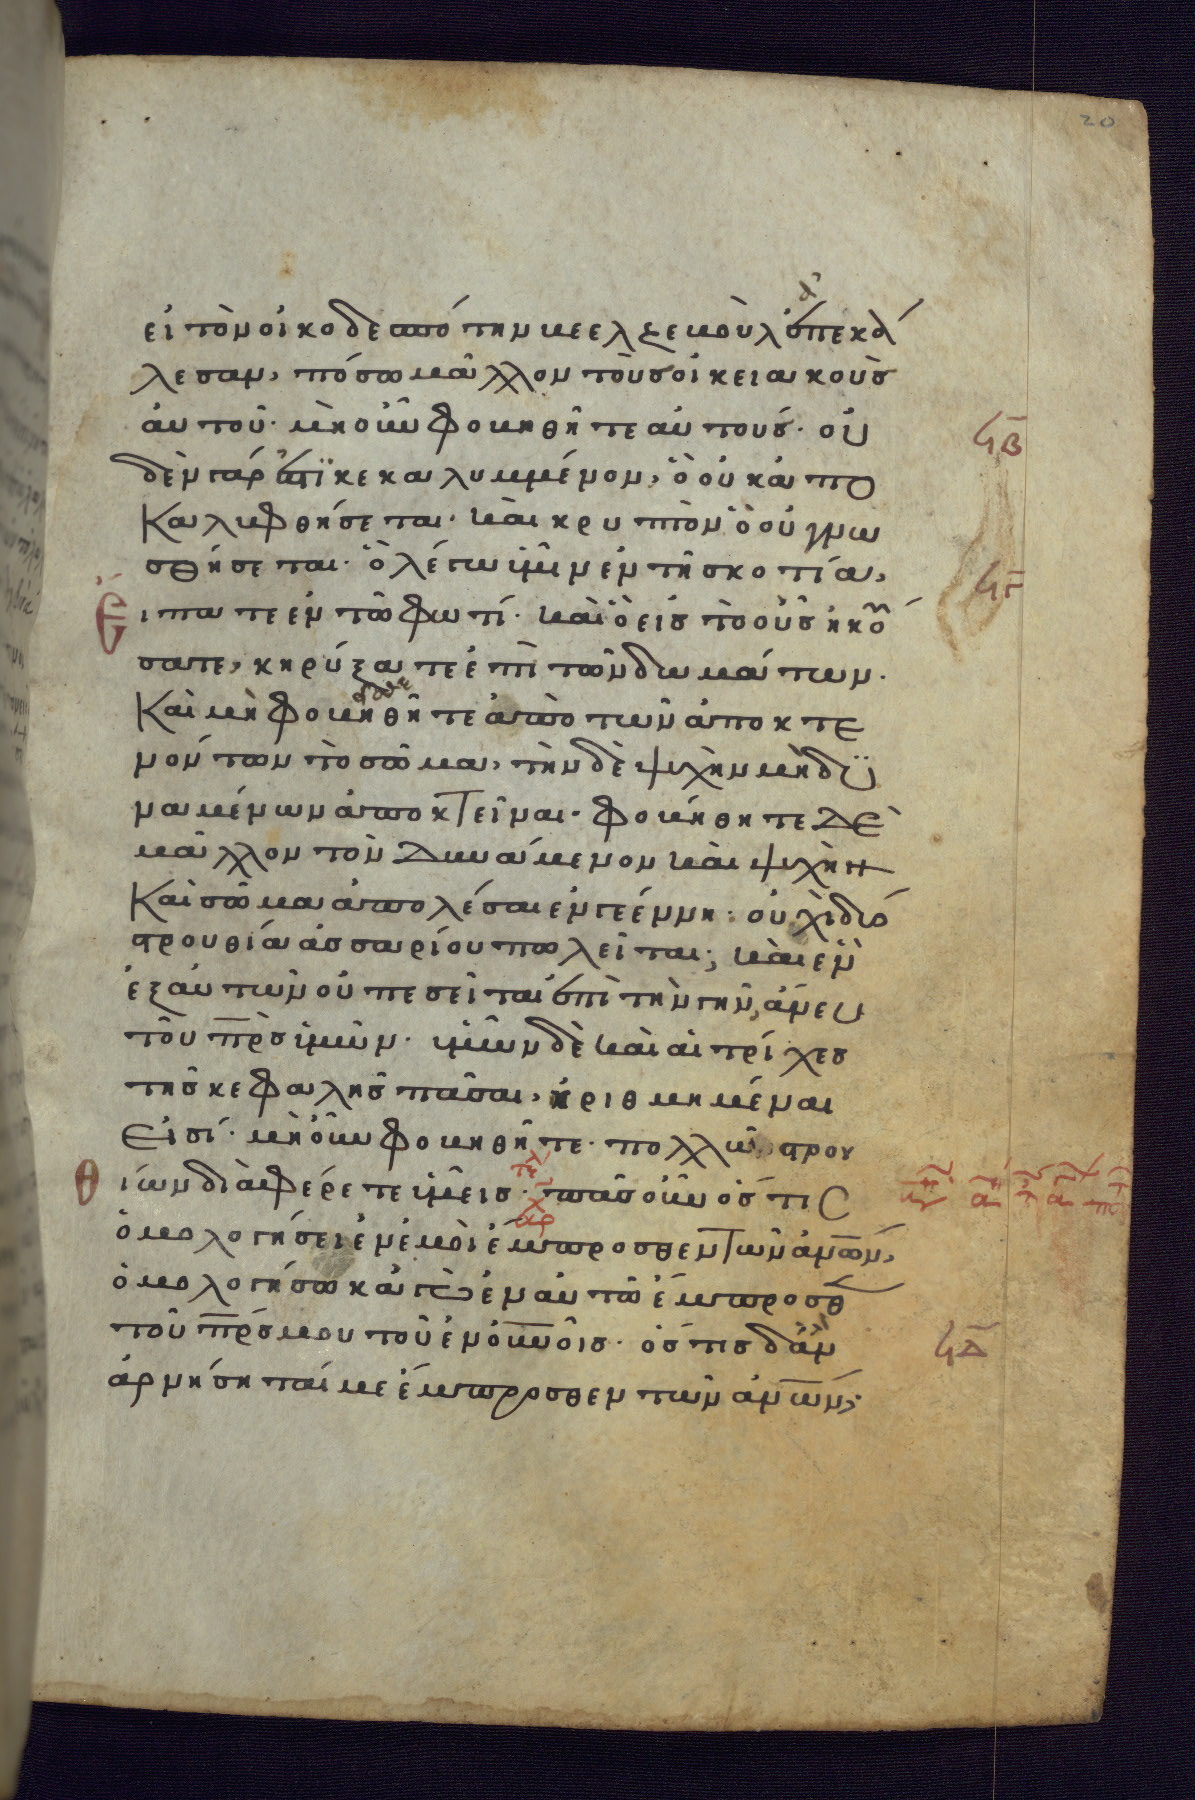 20
εἰ τὸν οἰκοδεσπότην βεελζεβοὺλ ἐπεκά
λεσαν, πόσω μᾶλλον τοὺς οἰκειακοὺς
αὐτοῦ· μὴ οὖν φοβηθῆτε αὐτούς· οὐ
δὲν γάρ ἐστι κεκαλυμμένον, ὃ οὐκ ἀπο
καλυφθήσεται· καὶ κρυπτὸν ὃ οὐ γνω
σθήσεται· ὃ λέγω ὑμῖν ἐν τῆ σκοτία,
εἴπατε ἐν τῶ φωτί· καὶ ὃ εἰς τὸ οὖς ἠκού
σατε, κηρύξατε ἐπὶ τῶν δωμάτων·
Καὶ μὴ φοβηθῆτε ἀπὸ τῶν ἀποκτε
νόντων τὸ σῶμα, τὴν δὲ ψυχὴν μὴ δυ
ναμένων ἀποκτεῖναι· φοβήθητε δὲ
μᾶλλον τὸν δυνάμενον καὶ ψυχὴν
Καὶ σῶμα ἀπολέσαι ἐν γεέννη· οὐχὶ δύο
στρουθία ἀσσαρίου πωλεῖται; καὶ ἓν
ἐξ αὐτῶν οὐ πεσεῖται ἐπὶ τὴν γῆν, ἄνευ
τοῦ πρσ ὑμῶν· ὑμῶν δὲ καὶ αἱ τρίχες
τῆς κεφαλῆς πᾶσαι, ἠριθμημέναι
Εἰσί· μὴ οὖν φοβηθῆτε· πολλῶν στρου
θίων διαφέρετε ὑμεῖς· πᾶς οὖν ὅστις
ὁμολογήσει ἐν ἐμοὶ ἔμπροσθεν τῶν ἀνων,
ὁμολογήσω κἀγὼ ἐν αὐτῶ ἔμπροσθ
τοῦ πρσ μου τοῦ ἐν οὐνοις· ὅστις δ' ἂν
ἀρνήσηταί με ἔμπροσθεν τῶν ἀνων,